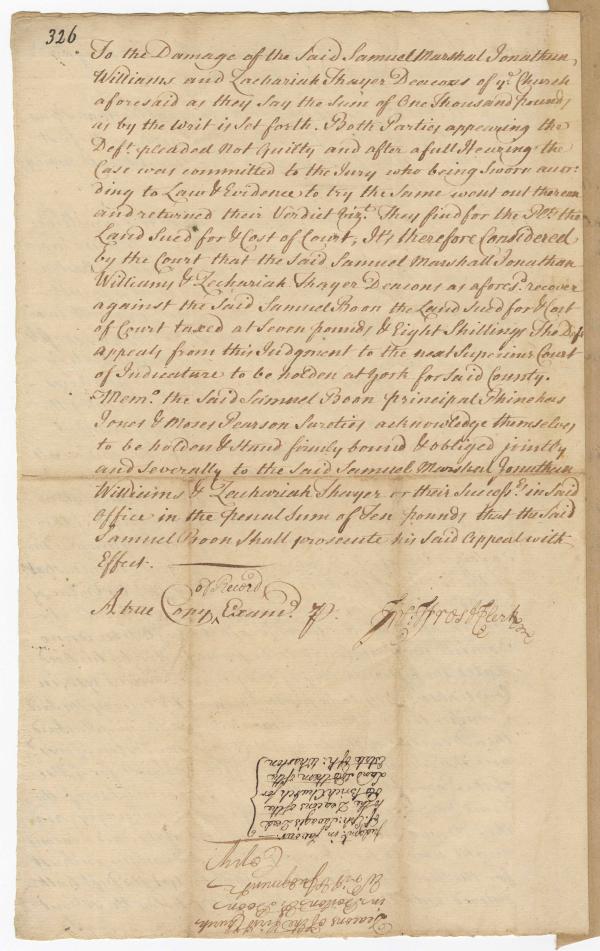 326
To the Damage of the Said Samuel Marshal Jonathan
Williams and Zachariah Thayer Deacons of ye. Church
aforesaid as they Say the Sum of One Thousand pounds
as by the Writ is Set forth. Both Parties appearing the
Deft. pleaded Not Guilty and after a full Hearing the
Case was committed to the Jury who being Sworn accor-
ding to Law & Evidence to try the Same went out thereon
and returned their Verdict Vizt. They find for the the
Land Sued for & Cost of Court, It's therefore Considered
by the Court that the Said Samuel Marshall Jonathan
Williams & Zechariah Thayer Deacons as aforesd. recover
against the Said Samuel Boon the Land Sued for & Cost
of Court taxed at Seven pounds & Eight Shillings The Deft
appeals from this Judgment to the next Superiour Court
of Judicature to be holden at York for Said County.
Memo. the Said Samuel Boon principal Phinehas
Jones & Moses Pearson Sureties acknowledge themselves
to be holden & Stand firmly bound & obliged jointly
and Severally to the Said Samuel Marshal Jonathan
Williams & Zachariah Thayer or their Success.rs in Said
Office in the penal Sum of Ten pounds that the Said
Samuel Boon Shall prosecute his Said Appeal with
Effect.
of Record
A true Copy Examd. P.
Frost Clerk
Deacons of the First Church
in Boston vs Boon
Writ & Judgment
Copy
Judgmt. in favour
of Savage's Deed
to the Deacons of the
Old Brick Church for
Land
Estate of R: Wharton